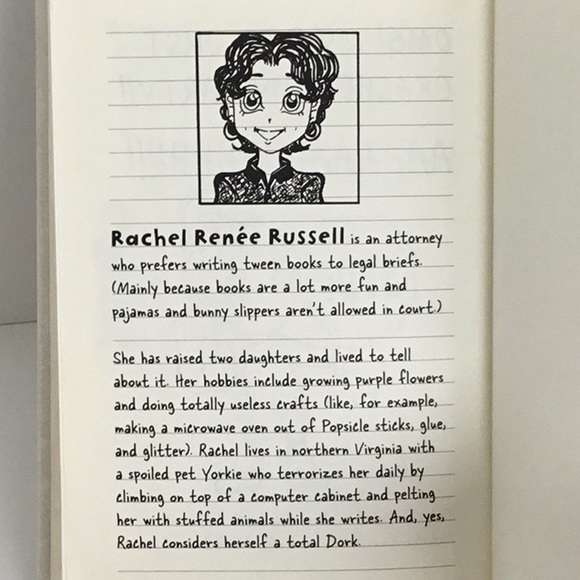 Rachel Renée Russell is an attorney
who prefers writing tween books to legal briefs.
(Mainly because books are a lot more fun and
pajamas and bunny slippers aren't allowed in court.)
She has raised two daughters and lived to tell
about it. Her hobbies include growing purple flowers
and doing totally useless crafts (like, for example,
making a microwave oven out of Popsicle sticks, glue,
and glitter). Rachel lives in northern Virginia with
a spoiled pet Yorkie who terrorizes her daily by
climbing on top of a computer cabinet and pelting
her with stuffed animals while she writes. And, yes,
Rachel considers herself a total Dork.